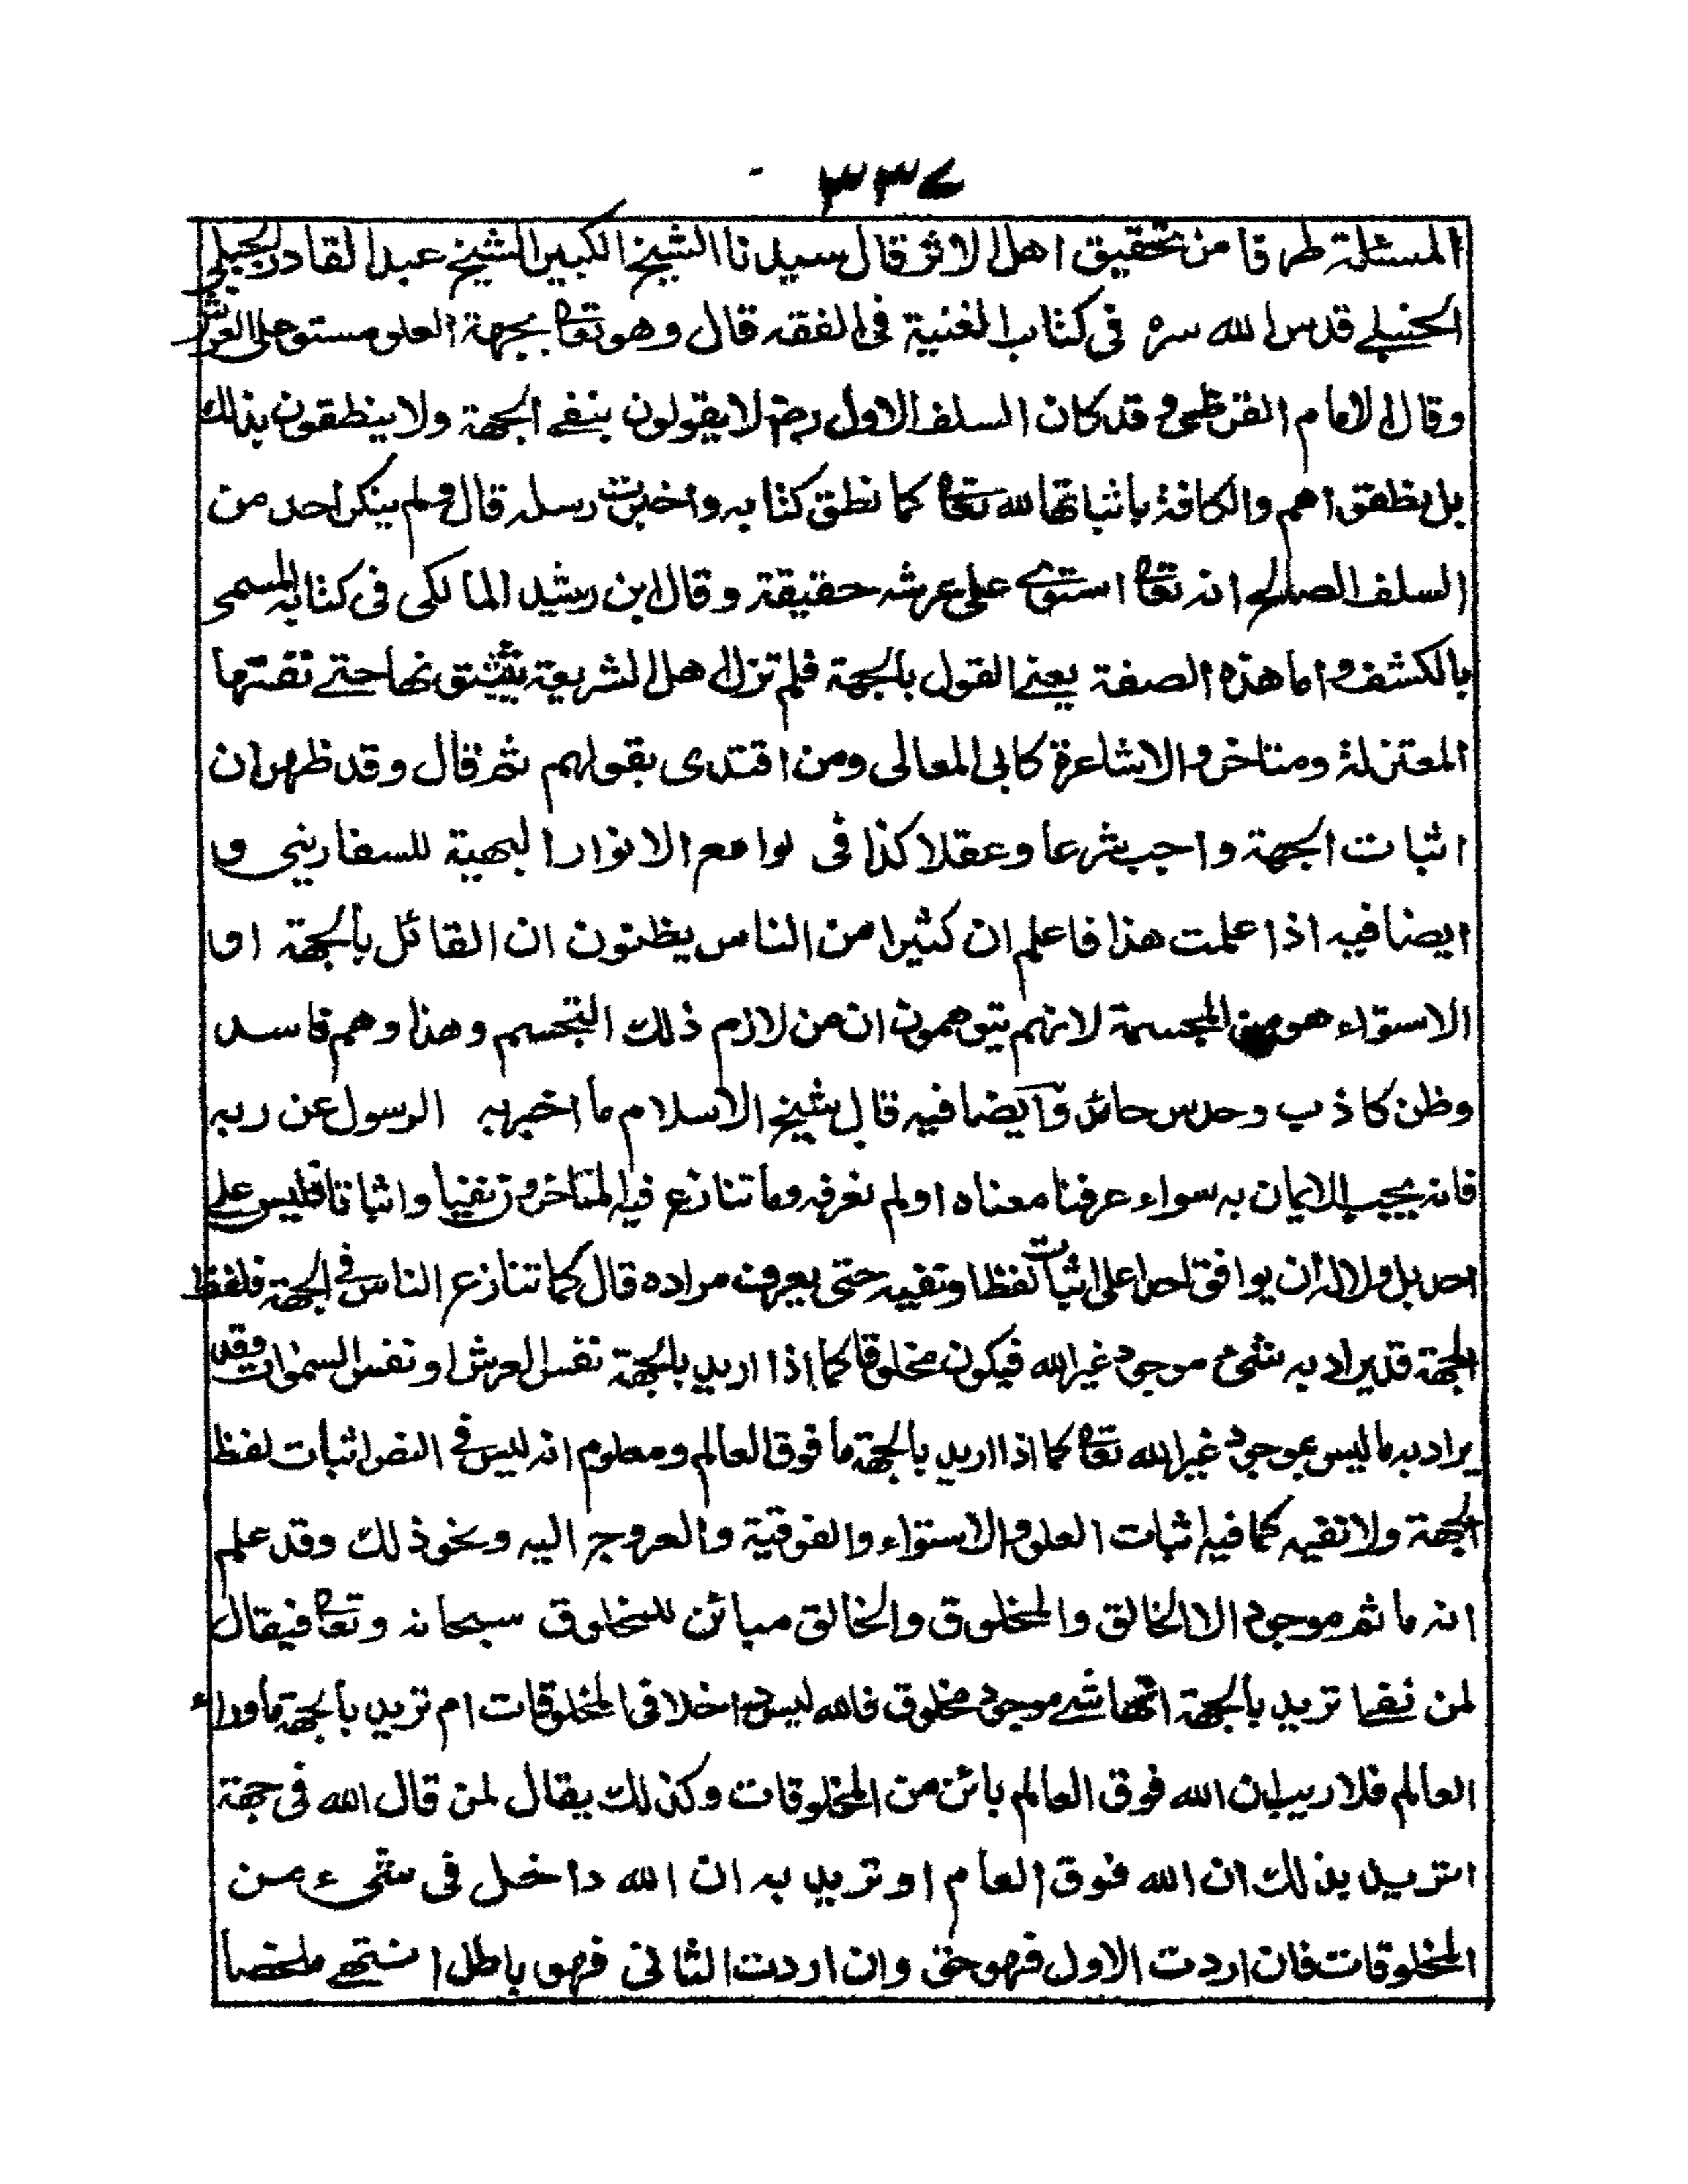 ٣٣٧
المسئلة طرقا من تحقيق اهل الاثر قال سيدنا الشيخ الكبير الشيخ عبد القادر الجيلي
الحنبلي قدس الله سره في كتاب الغنية في الفقه قال وهو تعا بجهة العلو مستو على العرش
وقال الامام القرطبي وقد كان السلف الاول رضـ لا يقولون بنفي الجهة ولا ينطقون بذلك
بل نطقوا هم والكافة باثباتها لله تعا كما نطق كتابه واخبرت رسله قال ولم ينكر احد من
السلف الصالح انه تعا استوى على عرشه حقيقة وقال ابن رشد المالكى فى كتابه المسمى
بالكشف واما هذه الصفة يعني القول بالجهة فلم تزل اهل الشريعة يثبتونها حتى نفتها
المعتزلة ومتاخرو الاشاعرة كابى المعالى ومن اقتدى بقولهم ثم قال وقد ظهر ان
اثبات الجهة واجب شرعا وعقلا كذا فى لوامع الانوار البهية للسفارينى و
ايضا فيه اذا علمت هذا فاعلم ان كثيرا من الناس يظنون ان القائل بالجهة او
الاستواء هو من المجسمة لانهم يتوهمون ان من لازم ذلك التجسم وهذا وهم فاسد
وظن كاذب وحدس حائد وايضا فيه قال شيخ الاسلام ما اخبر به الرسول عن ربه
فانه يجب الايمان به سواء عرفنا معناه او لم نعرفه وما تنازع فيه المتاخرون نفيا واثباتا فليس على
احد بل ولا له ان يوافق احدا على اثبات لفظ او نفيه حتى يعرف مراده قال كما تنازع الناس فى الجهة فلفظ
الجهة قد يراد به شئ موجود غير الله فيكون مخلوقا كما اذا اريد بالجهة نفس العرش او نفس السموات وقد
يراد به ما ليس بموجود غير الله تعا كما اذا اريد بالجهة ما فوق العالم ومعلوم انه ليس فى النص اثبات لفظ
الجهة ولا نفيه كما فيه اثبات العلو والاستواء والفوقية والعروج اليه ونحو ذلك وقد علم
انه ما ثم موجود الا الخالق والمخلوق والخالق مبائن للمخلوق سبحانه وتعا فيقال
لمن نفا تريد بالجهة انها شئ موجود مخلوق فالله ليس داخلا فى المخلوقات ام تريد بالجهة ما وراء
العالم فلا ريب ان الله فوق العالم بائن من المخلوقات وكذلك يقال لمن قال الله فى جهة
اتريد بذلك ان الله فوق العام او تريد به ان الله داخل فى شىء من
المخلوقات فان اردت الاول فهو حق وان اردت الثانى فهو باطل انتهى ملخصا